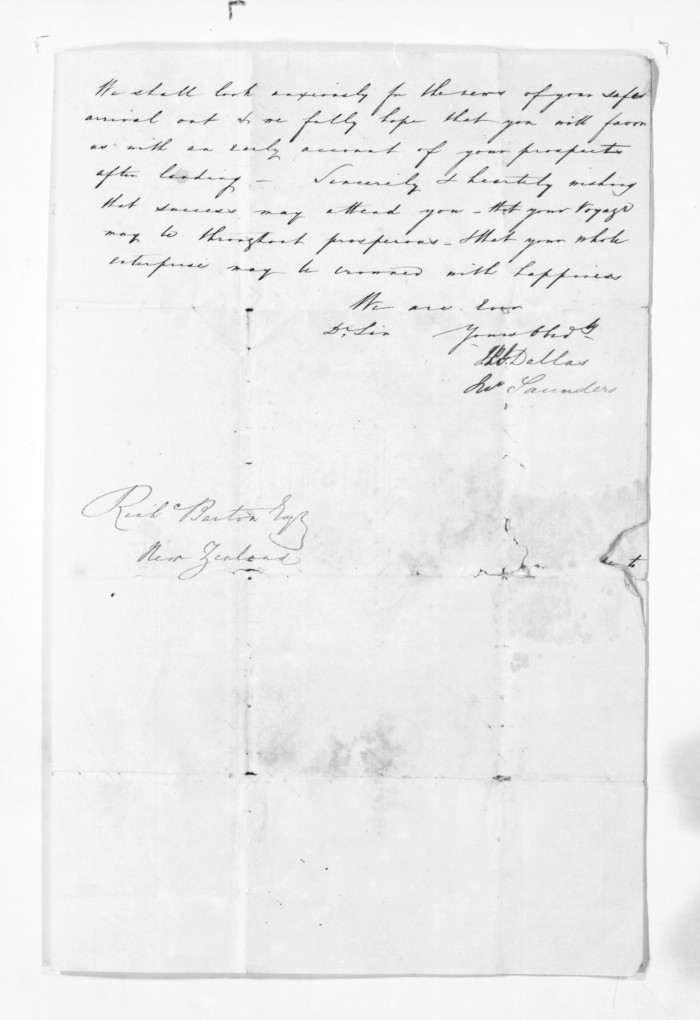 We shall look anxiously for the news of your safe
arrival out & we fully hope that you will favor
us with an early account of your prospects
after landing - Sincerely & heartily wishing
that success may attend you - that your Voyage
may be throughout prosperous - & that your whole
enterprise may be crowned with happiness
We are Ever
Dr Sir Yours Obedly
Dallas
Jno Saunders
Richd Barton Esqr
New Zealand
to